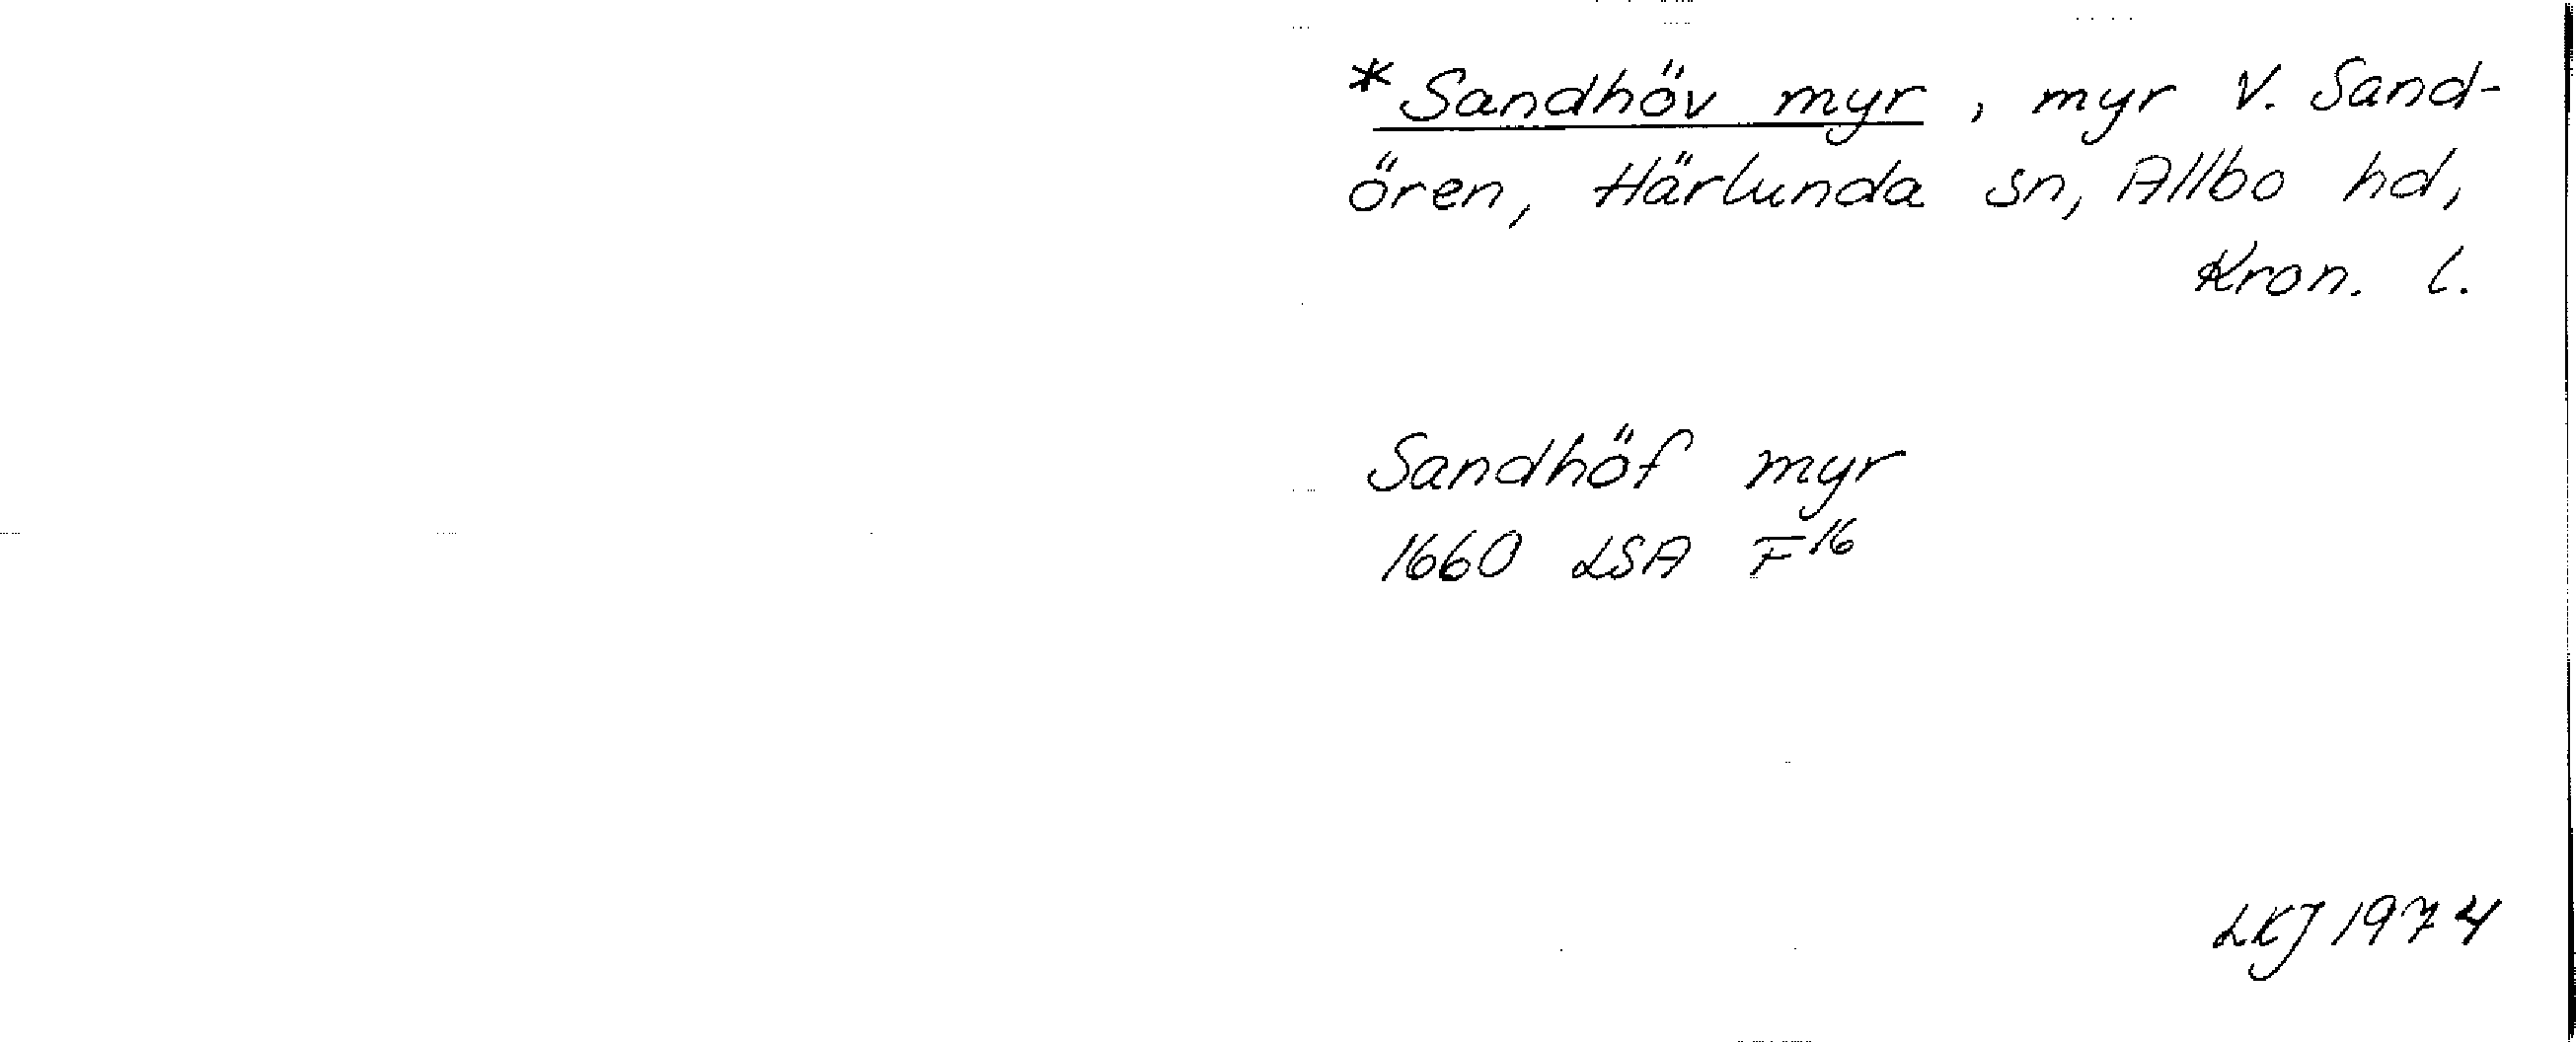 *Sandhöv myr, myr V. Sand-
ören, Härlunda sn, Allbo hd,
Kron. l.
Sandhöf myr
1660 LSA F16
LKJ 1974